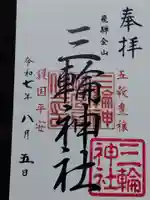 奉拝
飛騨金山
三輪神社
五穀豊穣
護国平安
令和七年八月五日
三輪
神社